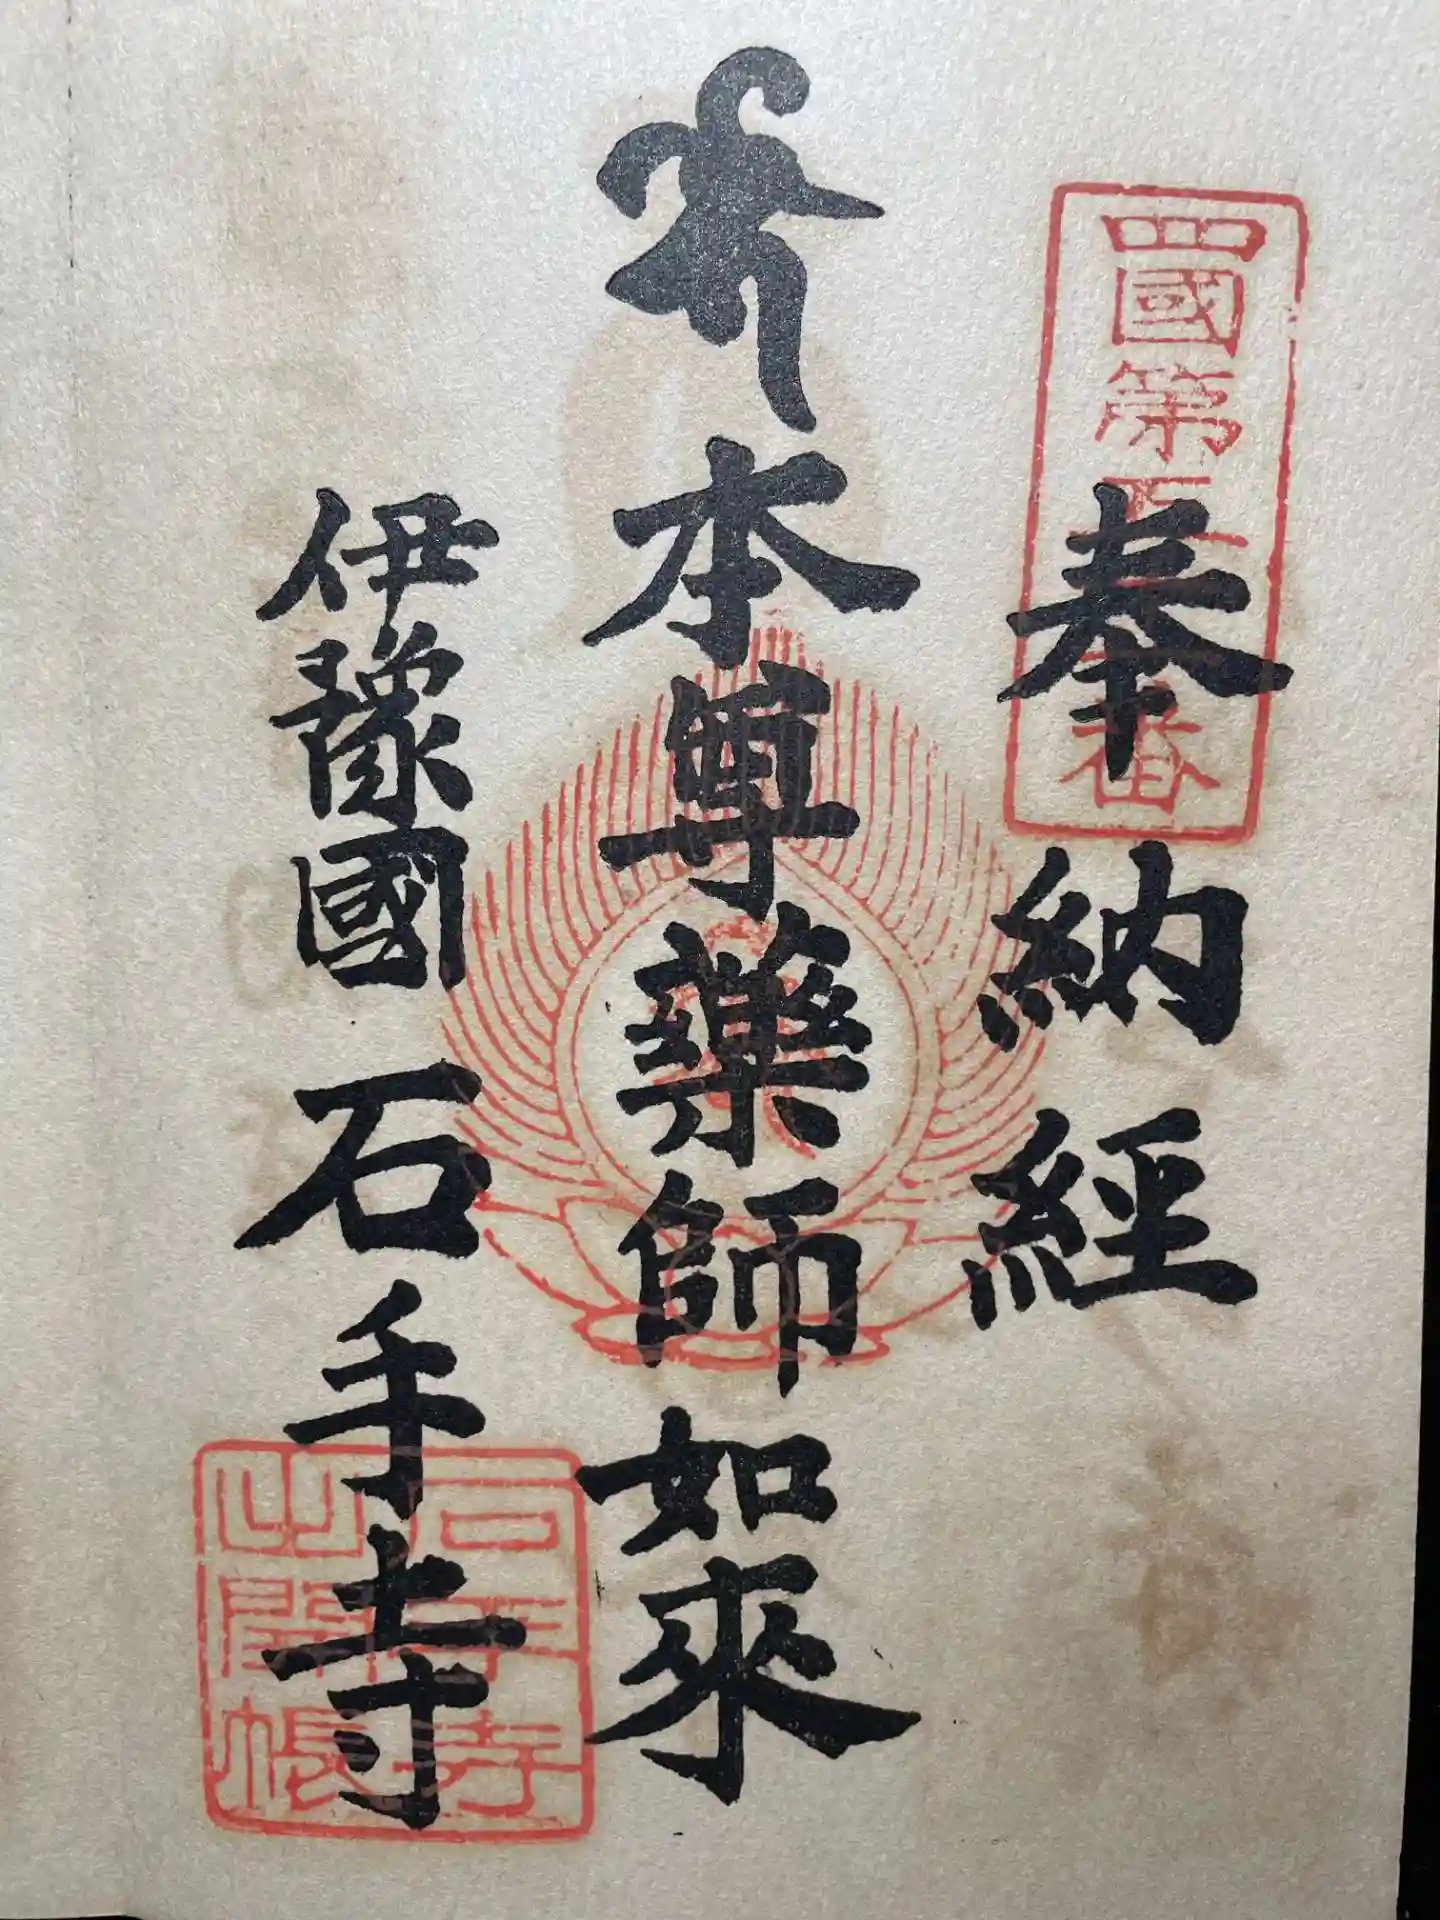 四國第五十一番
奉納経
本尊藥師如來
伊豫國 石手寺
石手寺